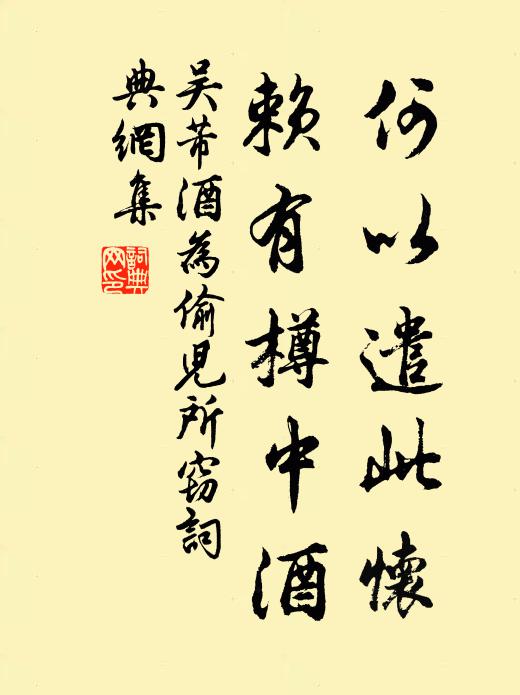 何以遣此懷
賴有樽中酒
吴芾酒為偷兒所竊詞
典網集
詞典
网印